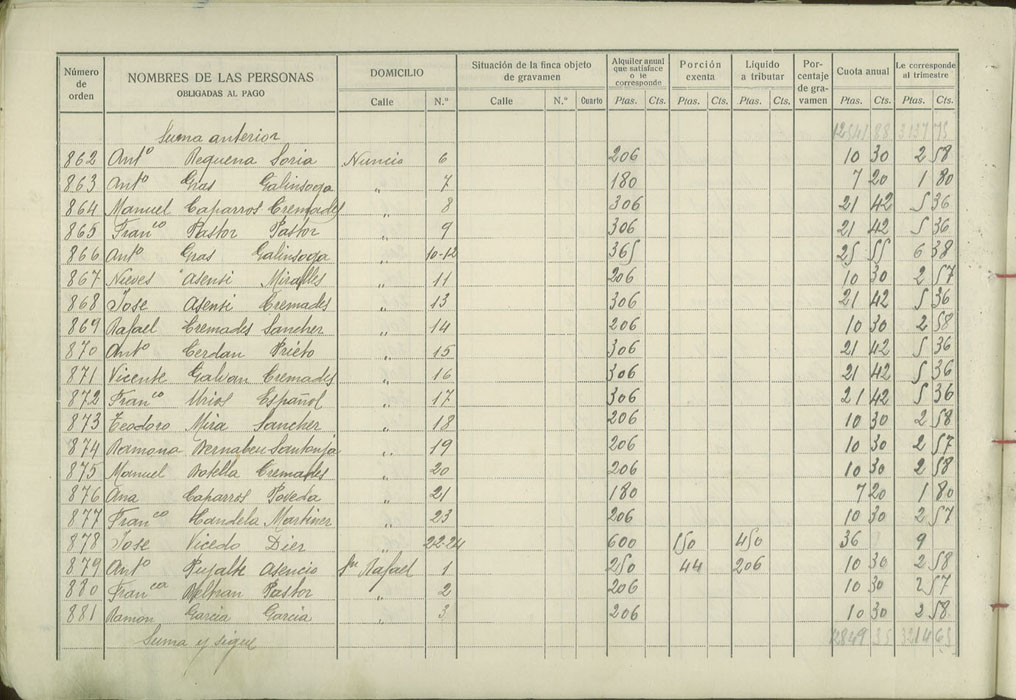 Número de orden | NOMBRES DE LAS PERSONAS OBLIGADAS AL PAGO | DOMICILIO Calle N.º | Situación de la finca objeto de gravamen Calle N.º Cuarto | Alquiler anual que satisface o le corresponde Ptas. Cts. | Porción exenta Ptas. Cts. | Líquido a tributar Ptas. Cts. | Porcentaje de gravamen | Cuota anual Ptas. Cts. | Le corresponde al trimestre Ptas. Cts.
Suma anterior 12541 88 3137 75
862 Antº Requena Soria Nuncio 6 206 10 30 2 58
863 Antº Gras Galinsoga " 7 180 7 20 1 80
864 Manuel Caparros Cremades " 8 306 21 42 5 36
865 Franco Pastor Pastor " 9 306 21 42 5 36
866 Antº Gras Galinsoga " 10-12 365 25 55 6 38
867 Nieves Asensi Miralles " 11 206 10 30 2 57
868 Jose Asensi Cremades " 13 306 21 42 5 36
869 Rafael Cremades Sancher " 14 206 10 30 2 58
870 Antº Cerdan Prieto " 15 306 21 42 5 36
871 Vicente Galvan Cremades " 16 306 21 42 5 36
872 Franco Urios Español " 17 306 21 42 5 36
873 Teodoro Mira Sancher " 18 206 10 30 2 58
874 Ramona Bernabeu Santonja " 19 206 10 30 2 57
875 Manuel Botella Cremades " 20 206 10 30 2 58
876 Ana Caparros Poveda " 21 180 7 20 1 80
877 Franco Candela Martiner " 23 206 10 30 2 57
878 Jose Vicedo Dier " 22-24 600 150 450 36 9
879 Antº Pujalte Asencio Sn Rafael 1 250 44 206 10 30 2 58
880 Franca Beltran Pastor " 2 206 10 30 2 57
881 Ramon Garcia Garcia " 3 206 10 30 2 58
Suma y sigue 12849 35 3214 63